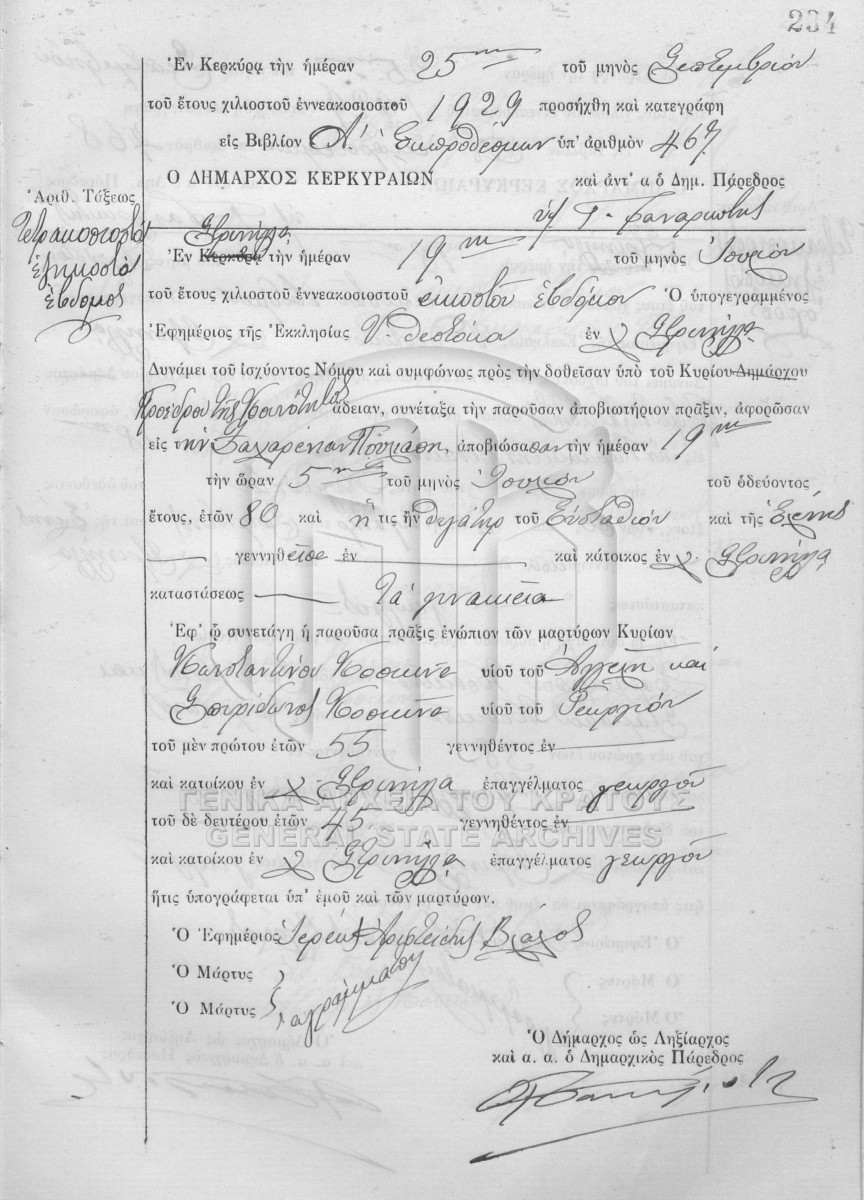 234
Ἐν Κερκύρᾳ τὴν ἡμέραν 25ην τοῦ μηνὸς Σεπτεμβρίου
τοῦ ἔτους χιλιοστοῦ ἐννεακοσιοστοῦ 1929 προσήχθη καὶ κατεγράφη
εἰς Βιβλίον Α΄. Ἐκπροθέσμων ὑπ' ἀριθμὸν 467
Ο ΔΗΜΑΡΧΟΣ ΚΕΡΚΥΡΑΙΩΝ καὶ ἀντ' α ὁ Δημ. Πάρεδρος
Ἀριθ. Τάξεως
Τετρακοσιοστὸ
ἑξηκοστὸ
ἕβδομος
Στρινύλα
Ἐν Κερκύρᾳ τὴν ἡμέραν 19ην τοῦ μηνὸς Ἰουνίου
τοῦ ἔτους χιλιοστοῦ ἐννεακοσιοστοῦ εἰκοστοῦ ἑβδόμου Ὁ ὑπογεγραμμένος
Ἐφημέριος τῆς Ἐκκλησίας Υ. Θεοτόκου ἐν χ Στρινύλα
Δυνάμει τοῦ ἰσχύοντος Νόμου καὶ συμφώνως πρὸς τὴν δοθεῖσαν ὑπὸ τοῦ Κυρίου Δημάρχου
Προέδρου τῆς Κοινότητος ἄδειαν, συνέταξα τὴν παροῦσαν ἀποβιωτήριον πρᾶξιν, ἀφορῶσαν
εἰς τὴν Ζαχαρένιαν ἀποβιώσασαν τὴν ἡμέραν 19ην
τὴν ὥραν 5 τοῦ μηνὸς Ἰουνίου τοῦ ὁδεύοντος
ἔτους, ἐτῶν 80 καὶ ἥ τις ἦν θυγάτηρ τοῦ Εὐσταθίου καὶ τῆς Ἑλένης
γεννηθεῖσα ἐν καὶ κάτοικος ἐν χ. Στρινύλα
καταστάσεως Τὰ γυναικεῖα
Ἐφ' ᾧ συνετάγη ἡ παροῦσα πρᾶξις ἐνώπιον τῶν μαρτύρων Κυρίων
Κωνσταντίνου Κοσκινᾶ υἱοῦ τοῦ Ἀγγελῆ καὶ
Σπυρίδωνος Κοσκινᾶ υἱοῦ τοῦ Γεωργίου
τοῦ μὲν πρώτου ἐτῶν 55 γεννηθέντος ἐν
καὶ κατοίκου ἐν χ Στρινύλα ἐπαγγέλματος γεωργοῦ
ΓΕΝΙΚΑ ΑΡΧΕΙΑ ΤΟΥ ΚΡΑΤΟΥΣ
τοῦ δὲ δευτέρου ἐτῶν 45 γεννηθέντος ἐν
GENERAL STATE ARCHIVES
καὶ κατοίκου ἐν χ Στρινύλα ἐπαγγέλματος γεωργοῦ
ἥτις ὑπογράφεται ὑπ' ἐμοῦ καὶ τῶν μαρτύρων.
Ὁ Ἐφημέριος Ἱερεὺς Ἀριστείδης Βλάχος
Ὁ Μάρτυς
Ὁ Μάρτυς ἀγράμματοι
Ὁ Δήμαρχος ὡς Ληξίαρχος
καὶ α. α. ὁ Δημαρχικὸς Πάρεδρος